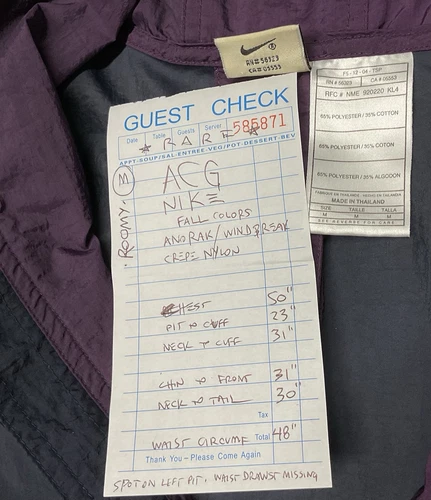 NIKE ®
RN# 56323
CA# 05553
FS-12-04-TSP
RN # 56323 CA # 05553
RFC # NME 920220 KL4
65% POLYESTER / 35% COTTON
65% POLYESTER / 35% COTON
65% POLYESTER / 35% ALGODON
FABRIQUE EN THAILANDE HECHO EN TAILANDIA
MADE IN THAILAND
SIZE TAILLE TALLA
M M M
SEE REVERSE FOR CARE
GUEST CHECK
Date Table Guests Server 585871
★ R A R E ★
APPT-SOUP/SAL-ENTREE-VEG/POT-DESSERT-BEV
M
·ROOMY·
ACG
NIKE
FALL COLORS
ANORAK/WINDBREAK
CREPE NYLON
CHEST 50"
PIT TO CUFF 23"
NECK TO CUFF 31"
CHIN TO FRONT 31"
NECK TO TAIL 30"
Tax
WAIST CIRCUMF Total 48"
Thank You – Please Come Again
SPOT ON LEFT PIT, WAIST DRAWST MISSING